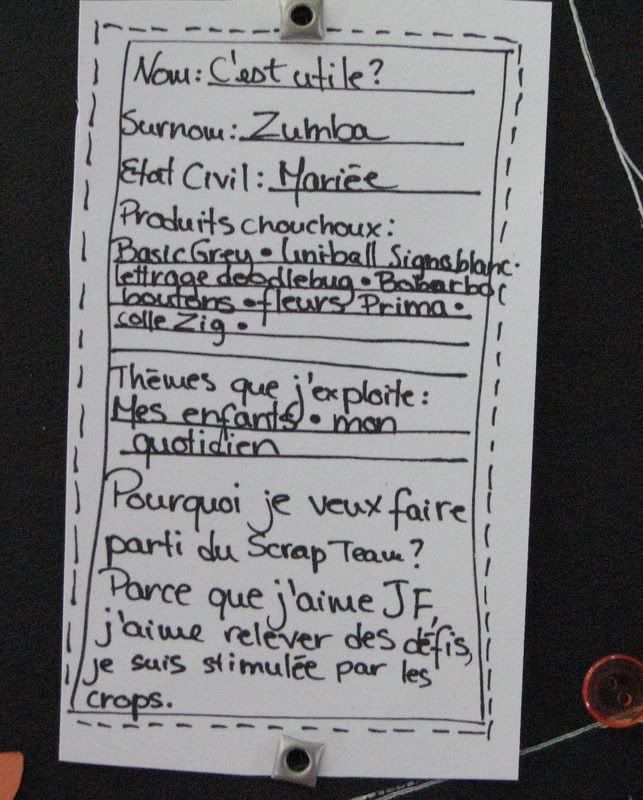 Nom: C'est utile?
Surnom: Zumba
Etat Civil: Mariée
Produits chouchoux:
Basic Grey • Uniball Signo blanc •
lettrage doodlebug •
boutons • fleurs Prima •
colle Zig •
Thèmes que j'exploite:
Mes enfants • mon
quotidien
Pourquoi je veux faire
parti du Scrap Team?
Parce que j'aime JF,
j'aime relever des défis,
je suis stimulée par les
crops.